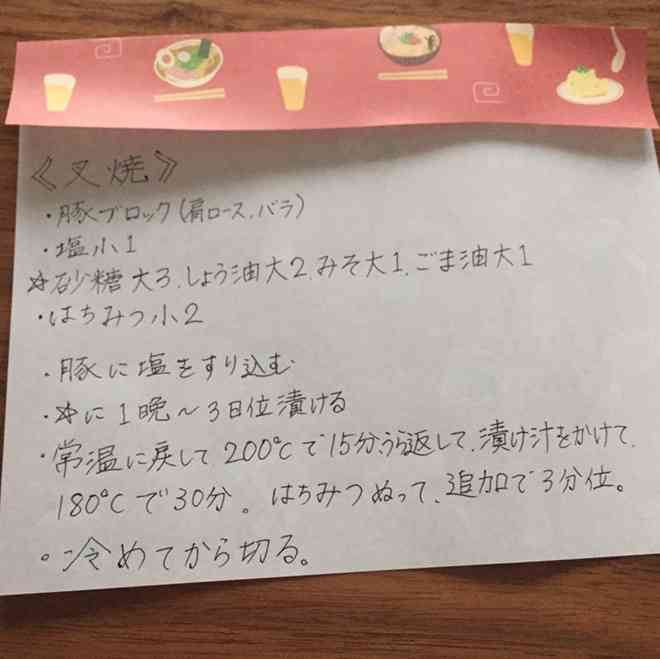 《叉焼》
・豚ブロック(肩ロース、バラ)
・塩小1
☆砂糖大3、しょう油大2、みそ大1、ごま油大1
・はちみつ小2
・豚に塩をすり込む
・☆に1晩～3日位漬ける
・常温に戻して200℃で15分、うら返して、漬け汁をかけて、
180℃で30分。はちみつぬって、追加で3分位。
・冷めてから切る。